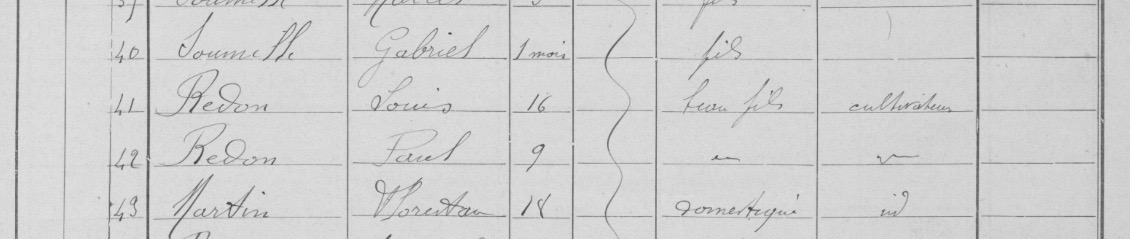 40 Soumille Gabriel 1 mois fils
41 Redon Louis 16 beau fils cultivateur
42 Redon Paul 9 " "
43 Martin 18 domestique id